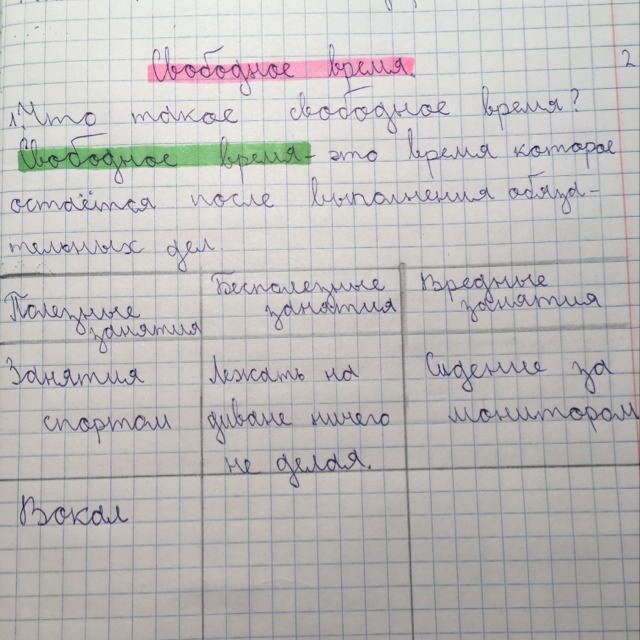 Свободное время.
2
1. Что такое свободное время?
Свободное время - это время которое
остаётся после выполнения обяза-
тельных дел
Полезные занятия
Бесполезные занятия
Вредные занятия
Занятия спортом
Лежать на диване ничего не делая.
Сидение за монитором
Вокал